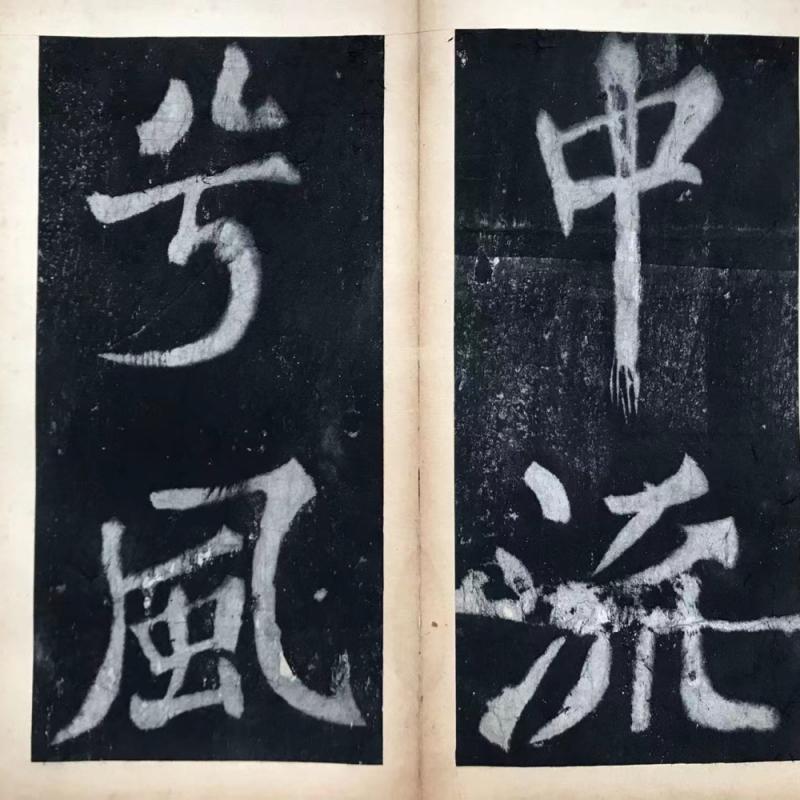 中流
兮風